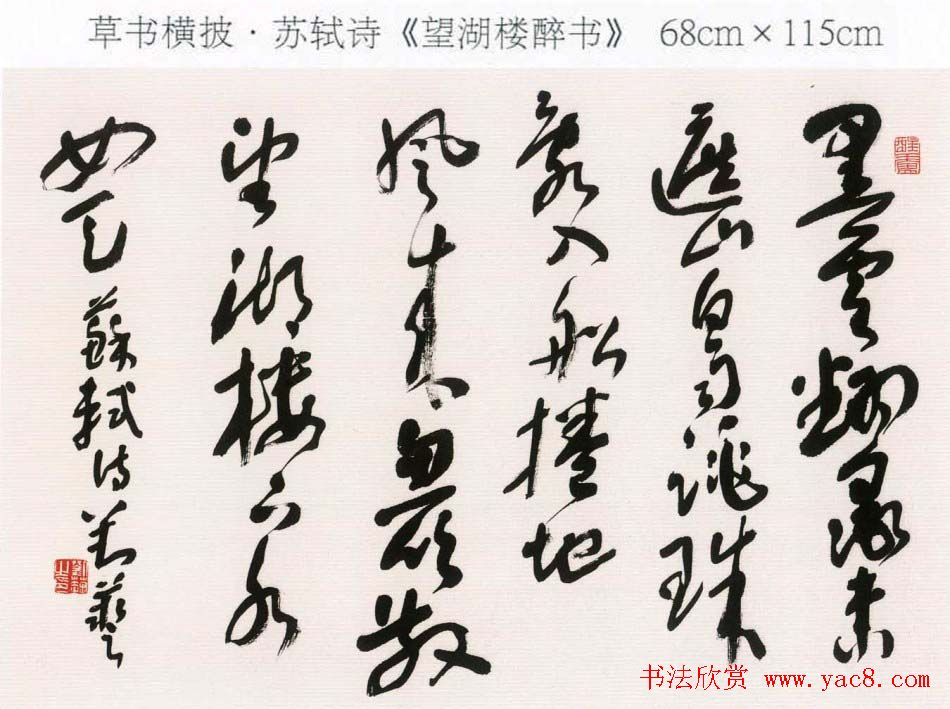 草书横披·苏轼诗《望湖楼醉书》 68cm×115cm
黑雲翻墨未
遮山白雨跳珠
亂入船捲地
風來忽吹散
望湖樓下水
如天 蘇軾诗 刘藝
书法欣赏 www.yac8.com